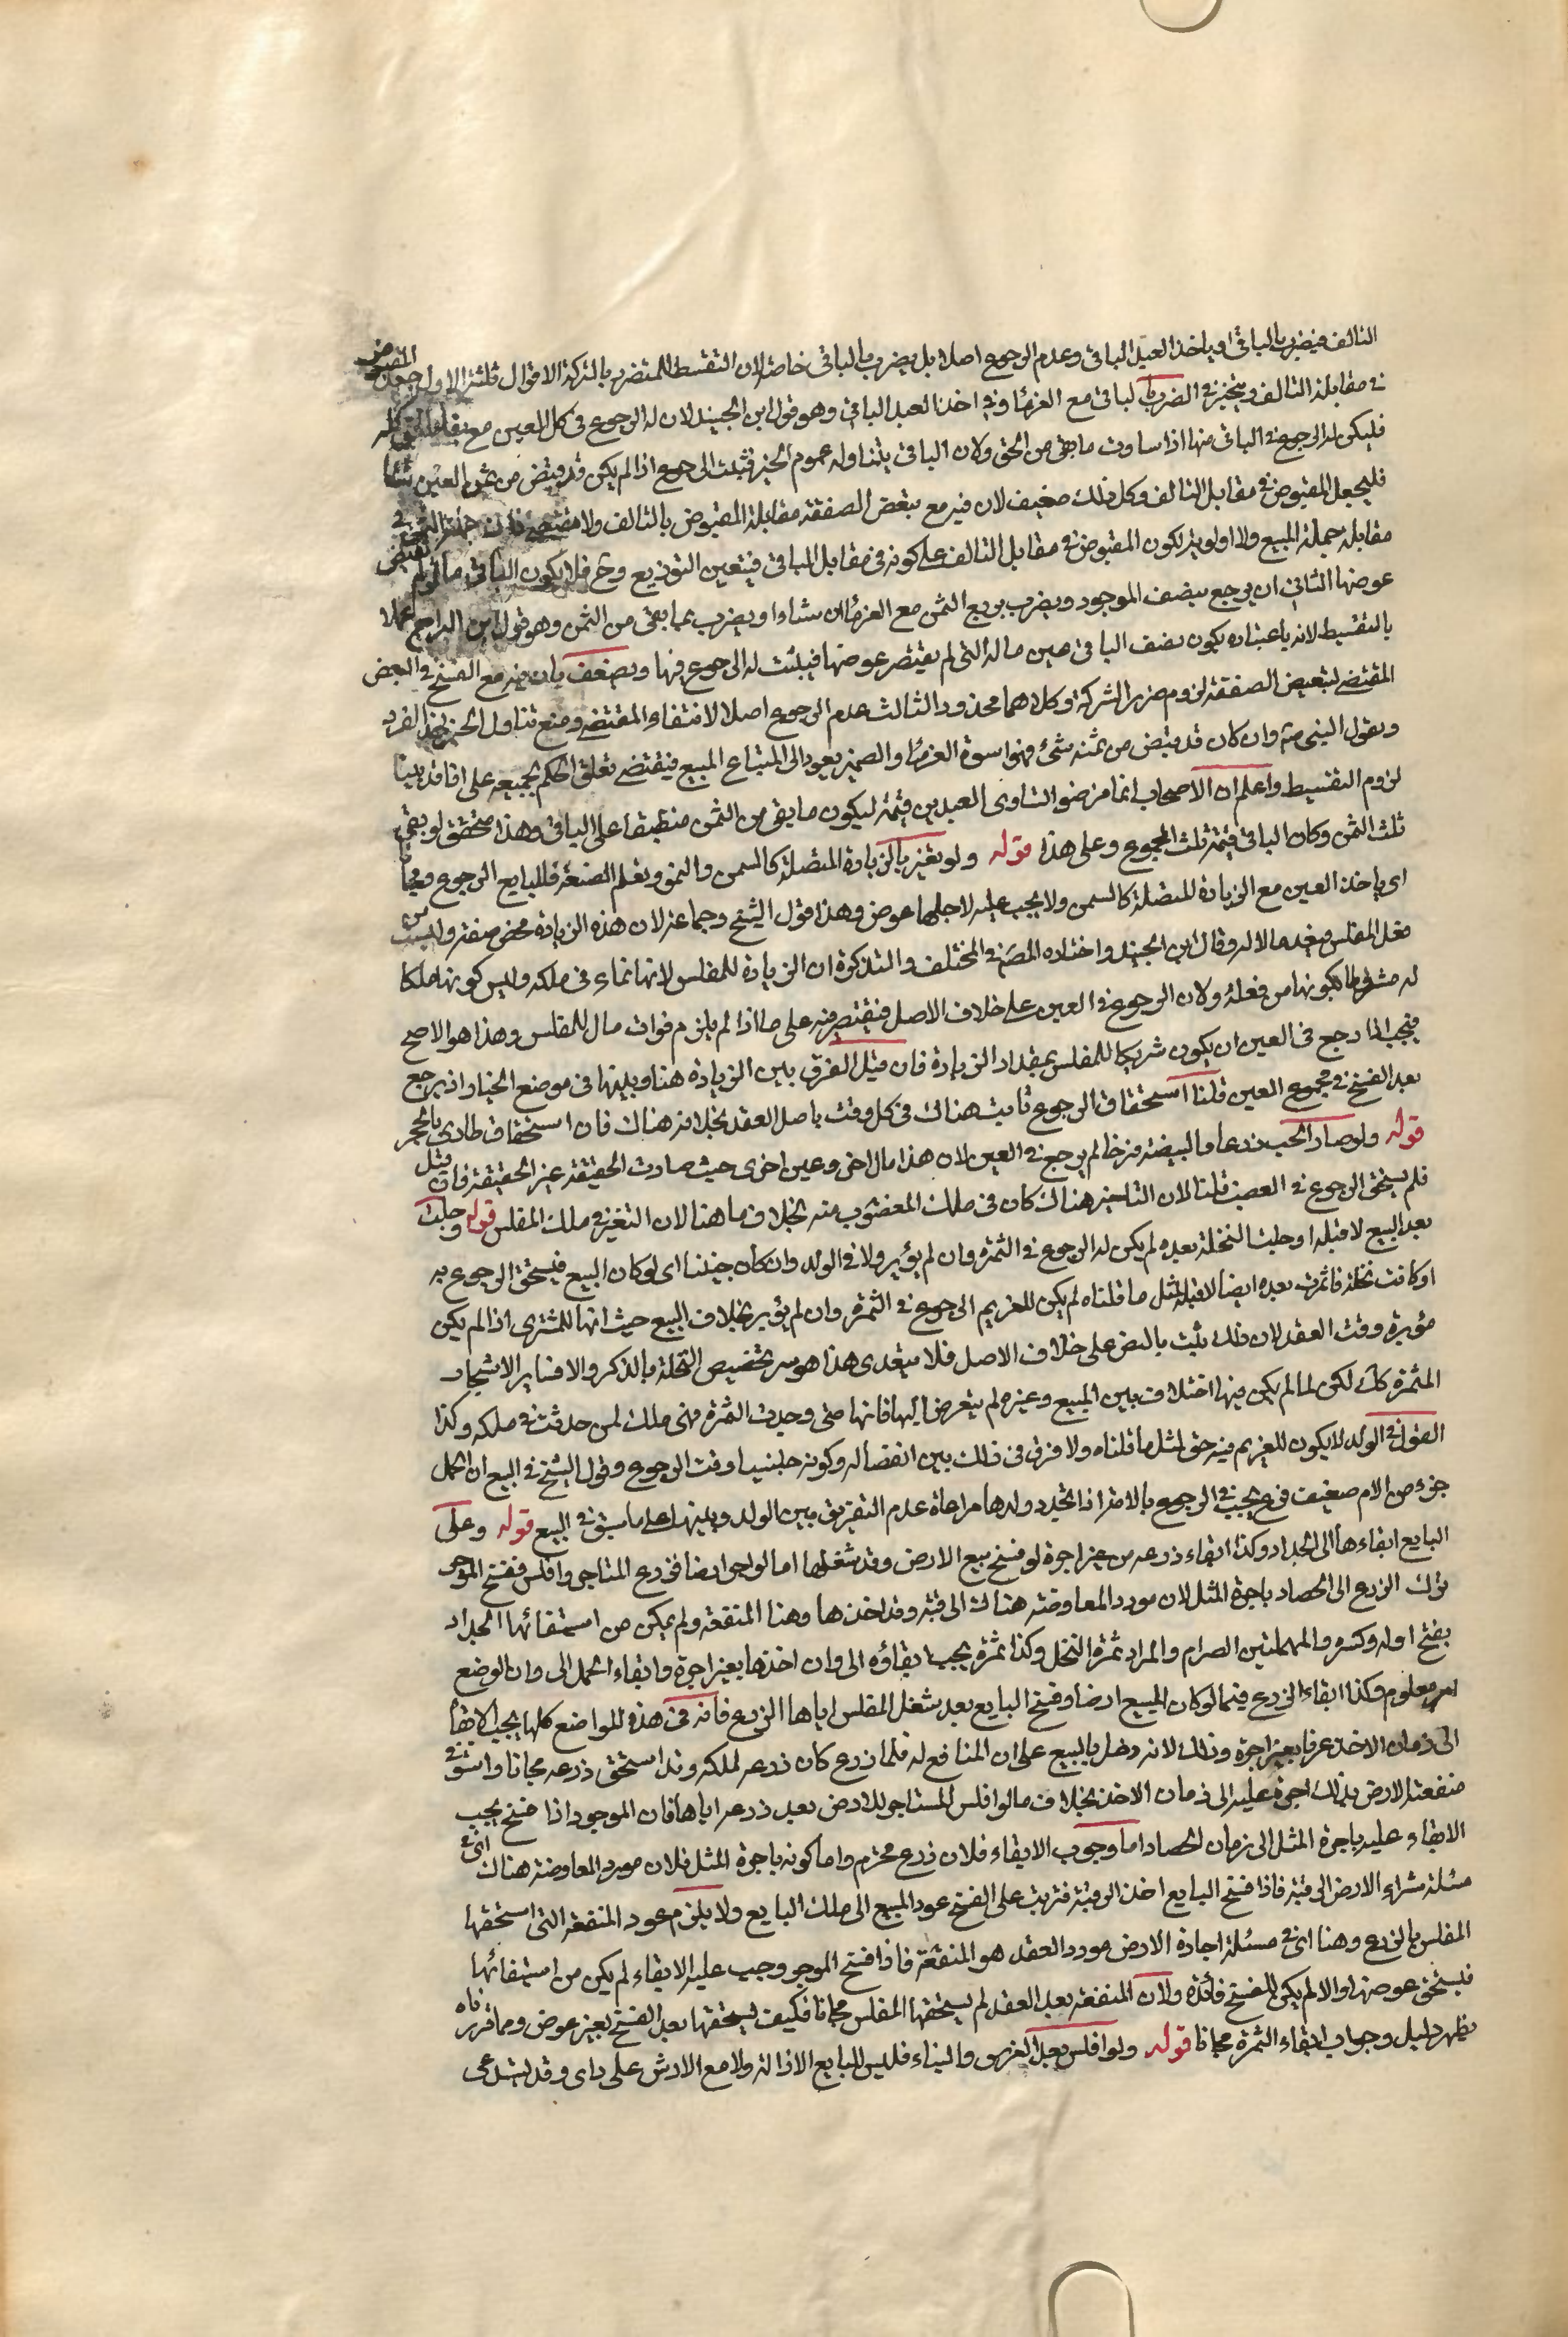 التالف فيضرب بالباقي او ياخذ العبد الباقي وعدم الرجوع اصلا بل يضرب بالباقي خاصة لان التقسيط للتضرر بالشركة الاقوال ثلثة الاول جعل المقبوض
في مقابلة التالف ويتخير في الضرب بالباقي مع الغرماء وفي اخذ العبد الباقي وهو قول ابن الجنيد لان له الرجوع في كل العين مع بقاء الحق كله
فليكن له الرجوع في الباقي منها اذا ساوت ما بقي من الحق ولان الباقي يتناوله عموم الخبر فثبت الرجوع اذا لم يكن قد قبض من ثمن العين شيئا
فليجعل المقبوض في مقابل التالف وكل ذلك ضعيف لان فيه مع تبعض الصفقة مقابلة المقبوض بالتالف ولا مقتضي فان جملة الثمن في
مقابلة جملة المبيع ولا اولوية بكون المقبوض في مقابل التالف على كونه في مقابل الباقي فيتعين التوزيع وح فلا يكون الباقي مما لم يقبض
عوضها الثاني ان يرجع بنصف الموجود ويضرب بربع الثمن مع الغرماء ان شاء او يضرب بما بقي من الثمن وهو قول ابن البراج عملا
بالتقسيط لانه باعتباره يكون نصف الباقي عين ماله التي لم يقبض عوضها فيثبت له الرجوع فيها ويضعف بان فيه مع الفسخ في البعض
المقتضي لتبعيض الصفقة لزوم ضرر الشركة وكلاهما محذور الثالث عدم الرجوع اصلا لانتفاء المقتضي ومنع تناول الخبر لهذا الفرد
وبقول النبي ص وان كان قد قبض من ثمنه شيئ فهو اسوة الغرماء والضمير يعود الى المبتاع المبيع فيقتضي تعلق الحكم بجميعه على انا قد بينا
لزوم التقسيط واعلم ان الاصحاب انما فرضوا لتساوي العبدين قيمة ليكون ما بقي من الثمن منطبقا على الباقي وهذا متحقق لو بقي
ثلث الثمن وكان الباقي قيمته ثلث المجموع وعلى هذا قوله ولو تغير بالزيادة المتصلة كالسمن والنمو وتعلم الصنعة فللبايع الرجوع مجانا
اي ياخذ العين مع الزيادة المتصلة كالسمن ولا يجب عليه لاجلها عوض وهذا قول الشيخ وجماعة لان هذه الزيادة محض صفة وليست من
فعل المفلس فيعدها مالا له وقال ابن الجنيد واختاره المصنف في المختلف والتذكرة ان الزيادة للمفلس لانها نماء في ملكه وليس كونها ملكا
له مشروطا بكونها من فعله ولان الرجوع في العين على خلاف الاصل فيقتصر فيه على ما اذا لم يلزم فوات مال للمفلس وهذا هو الاصح
فيجب اذا رجع في العين ان يكون شريكا للمفلس بمقدار الزيادة فان قيل الفرق بين الزيادة هنا وبينها في موضع الخيار اذ يرجع
بعد الفسخ في مجموع العين قلنا استحقاق الرجوع ثابت هناك في كل وقت باصل العقد بخلافه هناك فان استحقاق طارئ بالحجر
قوله ولو صار الحب زرعا والبيضة فرخا لم يرجع في العين لان هذا مال اخر وعين اخرى حيث صارت الحقيقة غير الحقيقة فان قيل
فلم يستحق الرجوع في الغصب قلنا لان التاخير هناك كان في ملك المغصوب منه بخلاف ما هنا لان التغير في ملك المفلس قوله وحلبت
بعد البيع لا قبله او حلبت النخلة بعده لم يكن له الرجوع في الثمرة وان لم يؤبر ولا في الولد وان كان جنينا اي لو كان المبيع فيستحق الرجوع به
او كانت نخلة فاثمرت بعده ايضا لا قبله لمثل ما قلناه لم يكن للغريم الرجوع في الثمرة وان لم يؤبر بخلاف البيع حيث انها للمشتري اذا لم يكن
مؤبرة وقت العقد لان ذلك يثبت بالنص على خلاف الاصل فلا يتعدى هذا هو سر تخصيص النخلة بالذكر والا فساير الاشجار
المثمرة كك لكن لما لم يكن فيها اختلاف بين المبيع وغيره لم يتعرض اليها فانها متى وجدت الثمرة فهى ملك لمن حدثت في ملكه وكذا
القول في الولد لا يكون للغريم فيه حق لمثل ما قلناه ولا فرق في ذلك بين انفصاله وكونه جنينيا وقت الرجوع وقول الشيخ في البيع ان الحمل
جزء من الام ضعيف فح يجب في الرجوع بالامة اذا تجدد ولدها مراعاة عدم التفريق بين الولد وبينها على ما سبق في البيع قوله وعلى
البايع ابقاءها الى الجداد وكذا ابقاء زرعه من غير اجرة لو فسخ مبيع الارض وقد شغلها اما لو اجر ارضا فزرع المستاجر وافلس ففسخ الموجر
ترك الزرع الى الحصاد باجرة المثل لان مورد المعاوضة هناك الرقبة وقد اخذها وهنا المنفعة ولم يمكن من استيفائها الجداد
بفتح اوله وكسره والمهملتين الصرام والمراد ثمرة النخل وكذا ثمرة يجب ابقاؤه الى وان اخذها بغير اجرة وابقاء الحمل الى وان الوضع
امر معلوم وكذا ابقاء الزرع فيما لو كان المبيع ارضا وفسخ البايع بعد شغل المفلس اياها الزرع فانه في هذه المواضع كلها يجب الابقاء
الى زمان الاخذ عرفا بغير اجرة وذلك لانه دخل بالبيع على ان المنافع له فلما زرع كان زرعه لملكه وقد استحق زرعه مجانا واستوفى
منفعة الارض بذلك اجرة عليه الى زمان الاخذ بخلاف ما لو افلس المستاجر للارض بعد زرعه اياها فان الموجر اذا فسخ يجب
الابقاء عليه باجرة المثل الى زمان الحصاد اما وجوب الابقاء فلان زرع محترم واما كونه باجرة المثل فلان مورد المعاوضة هناك اي في
مسئلة شراء الارض الرقبة فاذا فسخ البايع اخذ الرقبة فترتب على الفسخ عود المبيع الى ملك البايع ولا يلزم عود المنفعة التي استحقها
المفلس بالزرع وهنا اي في مسئلة اجارة الارض مورد العقد هو المنفعة فاذا فسخ الموجر وجب عليه الابقاء لم يكن من استيفائها
فيستحق عوضها والا لم يكن للفسخ فائدة ولان المنفعة بعد العقد لم يستحقها المفلس مجانا فكيف يستحقها بعد الفسخ بغير عوض ومما قررناه
يظهر دليل وجواب ابقاء الثمرة مجانا قوله ولو افلس بعد الغرس والبناء فليس للبايع الازالة ولا مع الارش على راى وقد يستدعى